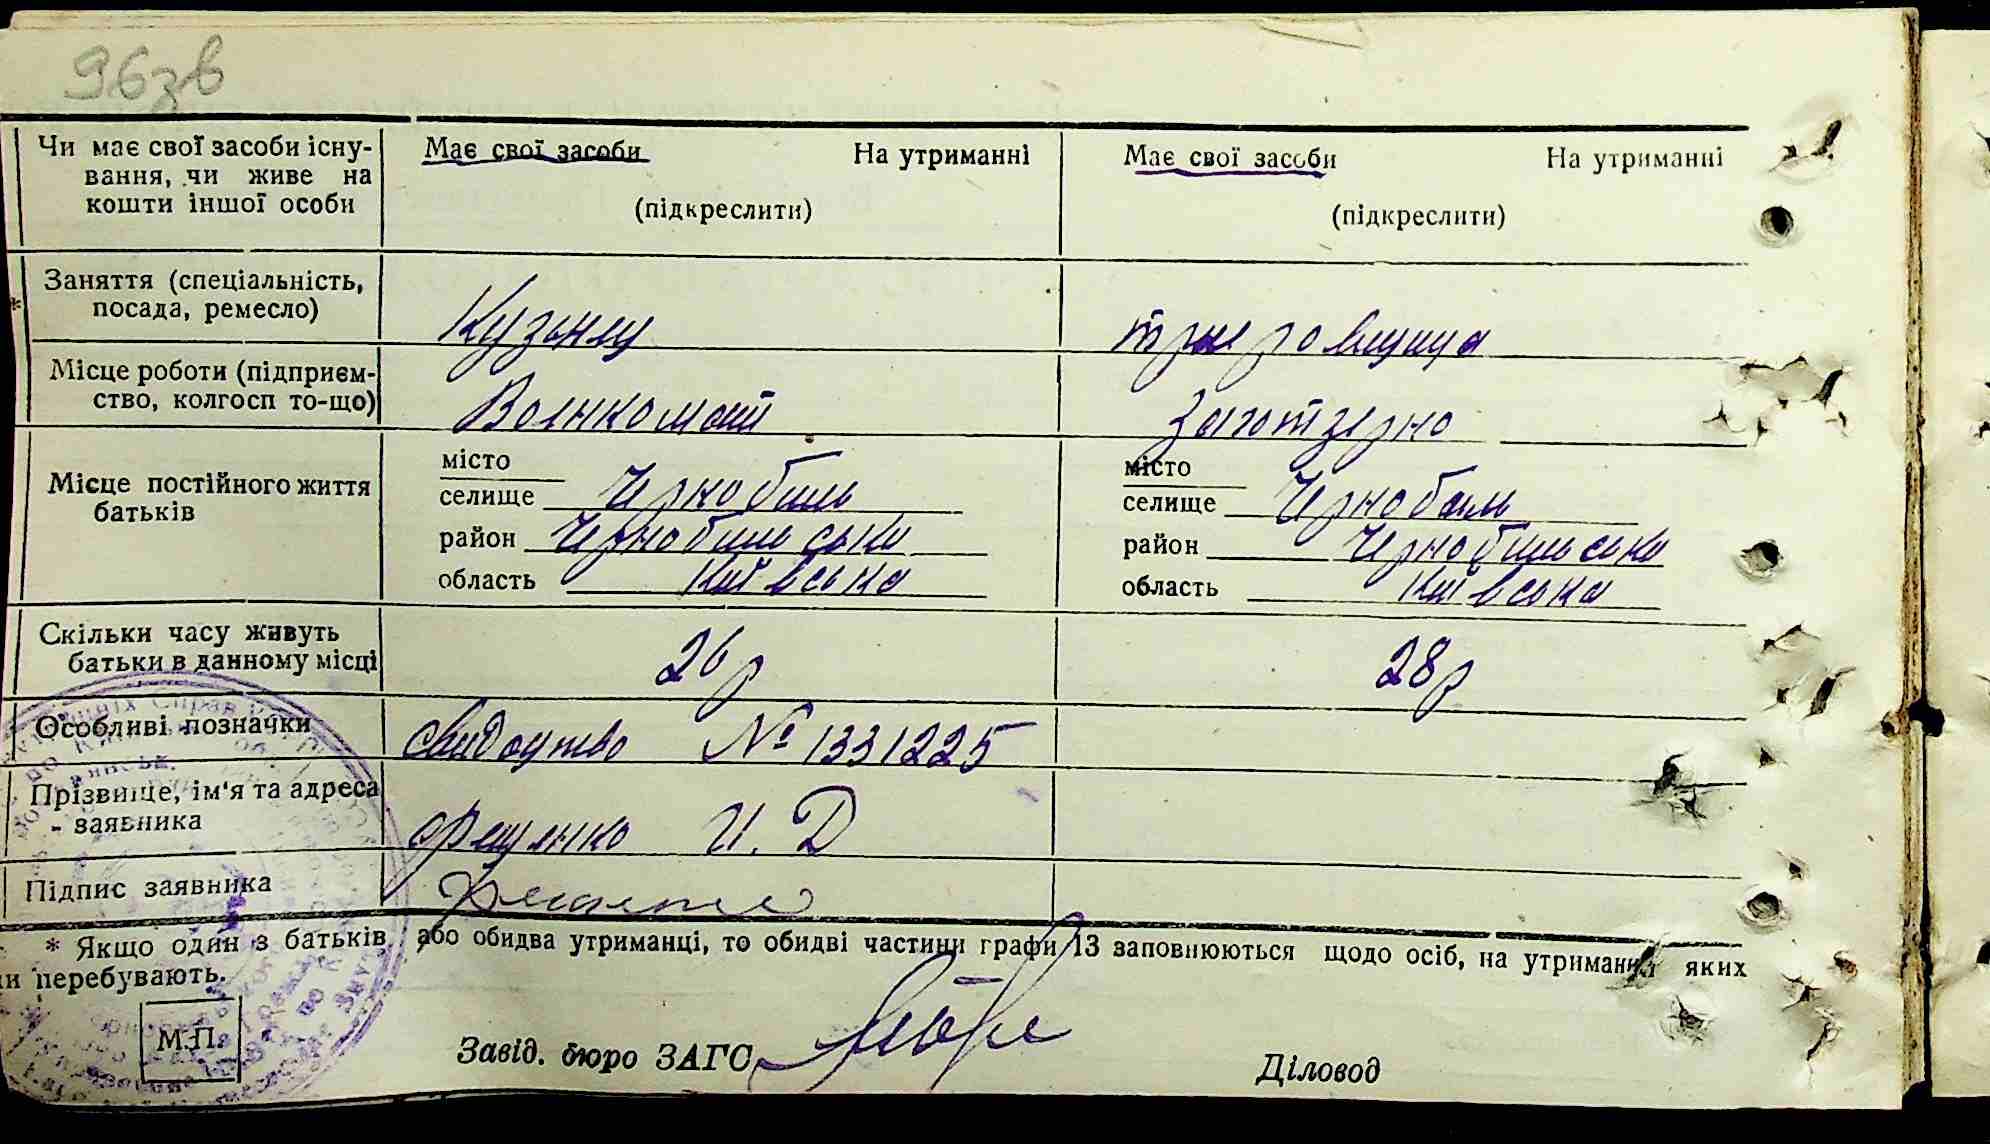 96зв
Чи має свої засоби існу-
вання, чи живе на
кошти іншої особи
Має свої засоби На утриманні
(підкреслити)
Має свої засоби На утриманні
(підкреслити)
* Заняття (спеціальність,
посада, ремесло)
Кузнец
Місце роботи (підприєм-
ство, колгосп то-що)
Военкомат
Заготзерно
Місце постійного життя
батьків
місто
селище Чернобиль
район Чернобильськи
область Київська
місто
селище Чернобиль
район Чернобильськи
область Київська
Скільки часу живуть
батьки в данному місці
26р
28р
Особливі позначки
свидоцтво № 1331225
Прізвище, ім'я та адреса
- заявника
И. Д
Підпис заявника
* Якщо один з батьків або обидва утриманці, то обидві частини графи 13 заповнюються щодо осіб, на утриманні яких
ни перебувають.
М.П.
Завід. бюро ЗАГС
Діловод